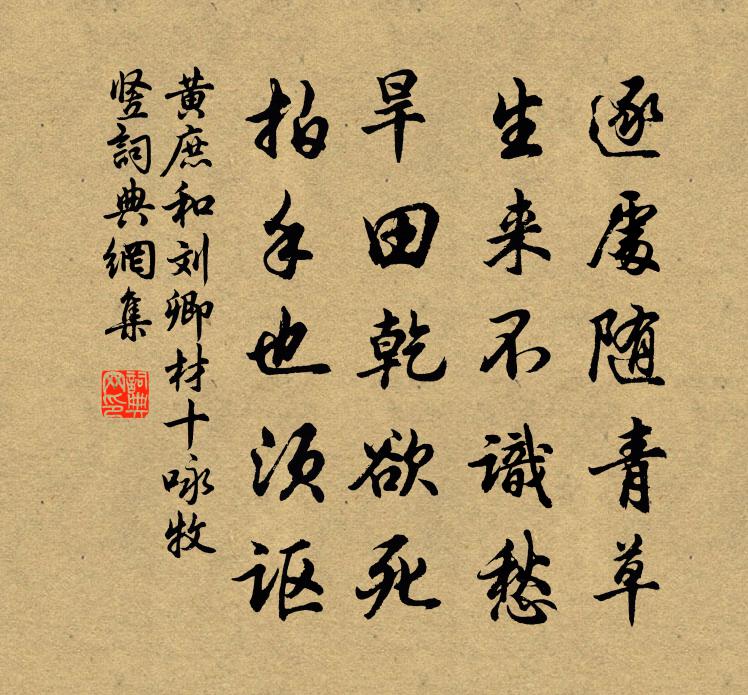 逐處随青草
生来不識愁
旱田乾欲死
拍手也须讴
黄庶和刘卿材十咏牧
竖詞典網集
詞典網印